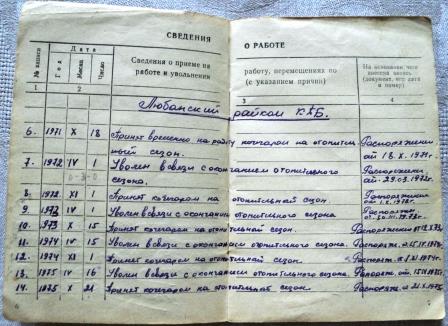 СВЕДЕНИЯ О РАБОТЕ
№ записи
Дата
Год
Месяц
Число
Сведения о приеме на работу, перемещениях по
работе и увольнении (с указанием причин)
На основании чего
внесена запись
(документ, его дата
и номер)
1 2 3 4
Любанский райком КПБ.
6. 1971 X 18 Принят временно на работу кочегаром на отопитель- Распоряжение
ный сезон. от 18.X.1971г.
7. 1972 IV 1 Уволен в связи с окончанием отопительного Распоряжение
сезона.
8. 1972 XI 1 Принят кочегаром на отопительный сезон. Распоряжение
9. 1973 IV 1 Уволен в связи с окончанием отопительного сезона Распоряж.
10. 1973 X 15 Принят кочегаром на отопительный сезон. Распоряжение
11. 1974 IV 15 Уволен в связи с окончанием отопительного сезона. Распоряж.
12. 1974 XI 1 Принят кочегаром на отопительный сезон. Распоряж.
13. 1975 IV 16 Уволен в связи с окончанием отопительного сезона.
14. 1975 X 21 Принят кочегаром на отопительный сезон. Распоряж.